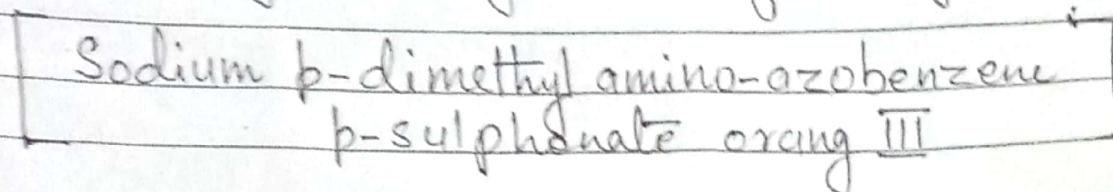 Sodium p-dimethyl amino-azobenzene
p-sulphonate orang III